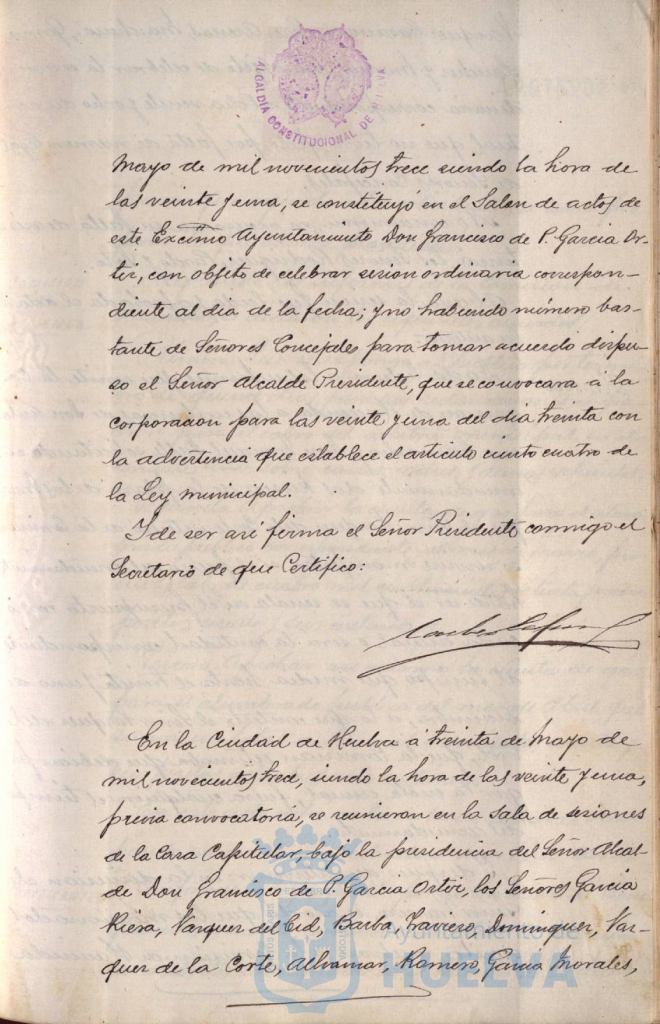 ALCALDIA CONSTITUCIONAL DE HUELVA
Mayo de mil novecientos trece siendo la hora de
las veinte y una, se constituyó en el Salon de actos de
este Excmo Ayuntamiento Don Francisco de P. Garcia Or-
tiz, con objeto de celebrar sesion ordinaria correspon-
diente al dia de la fecha; y no habiendo número bas-
tante de Señores Concejales para tomar acuerdo dispu-
so el Señor Alcalde Presidente, que se convocara á la
corporacion para las veinte y una del dia treinta con
la advertencia que establece el articulo ciento cuatro de
la Ley municipal.
Y de ser asi firma el Señor Presidente conmigo el
Secretario de que Certifico:
En la Ciudad de Huelva á treinta de Mayo de
mil novecientos trece, siendo la hora de las veinte y una,
previa convocatoria, se reunieron en la sala de sesiones
de la Casa Capitular, bajo la presidencia del Señor Alcal-
de Don Francisco de P. Garcia Ortiz, los Señores Garcia
Riera, Vazquez del Cid, Barba, Traviero, Dominguez, Vaz-
quez de la Corte, Alhamar, Romero, Garcia Morales,
Ayuntamiento de
HUELVA